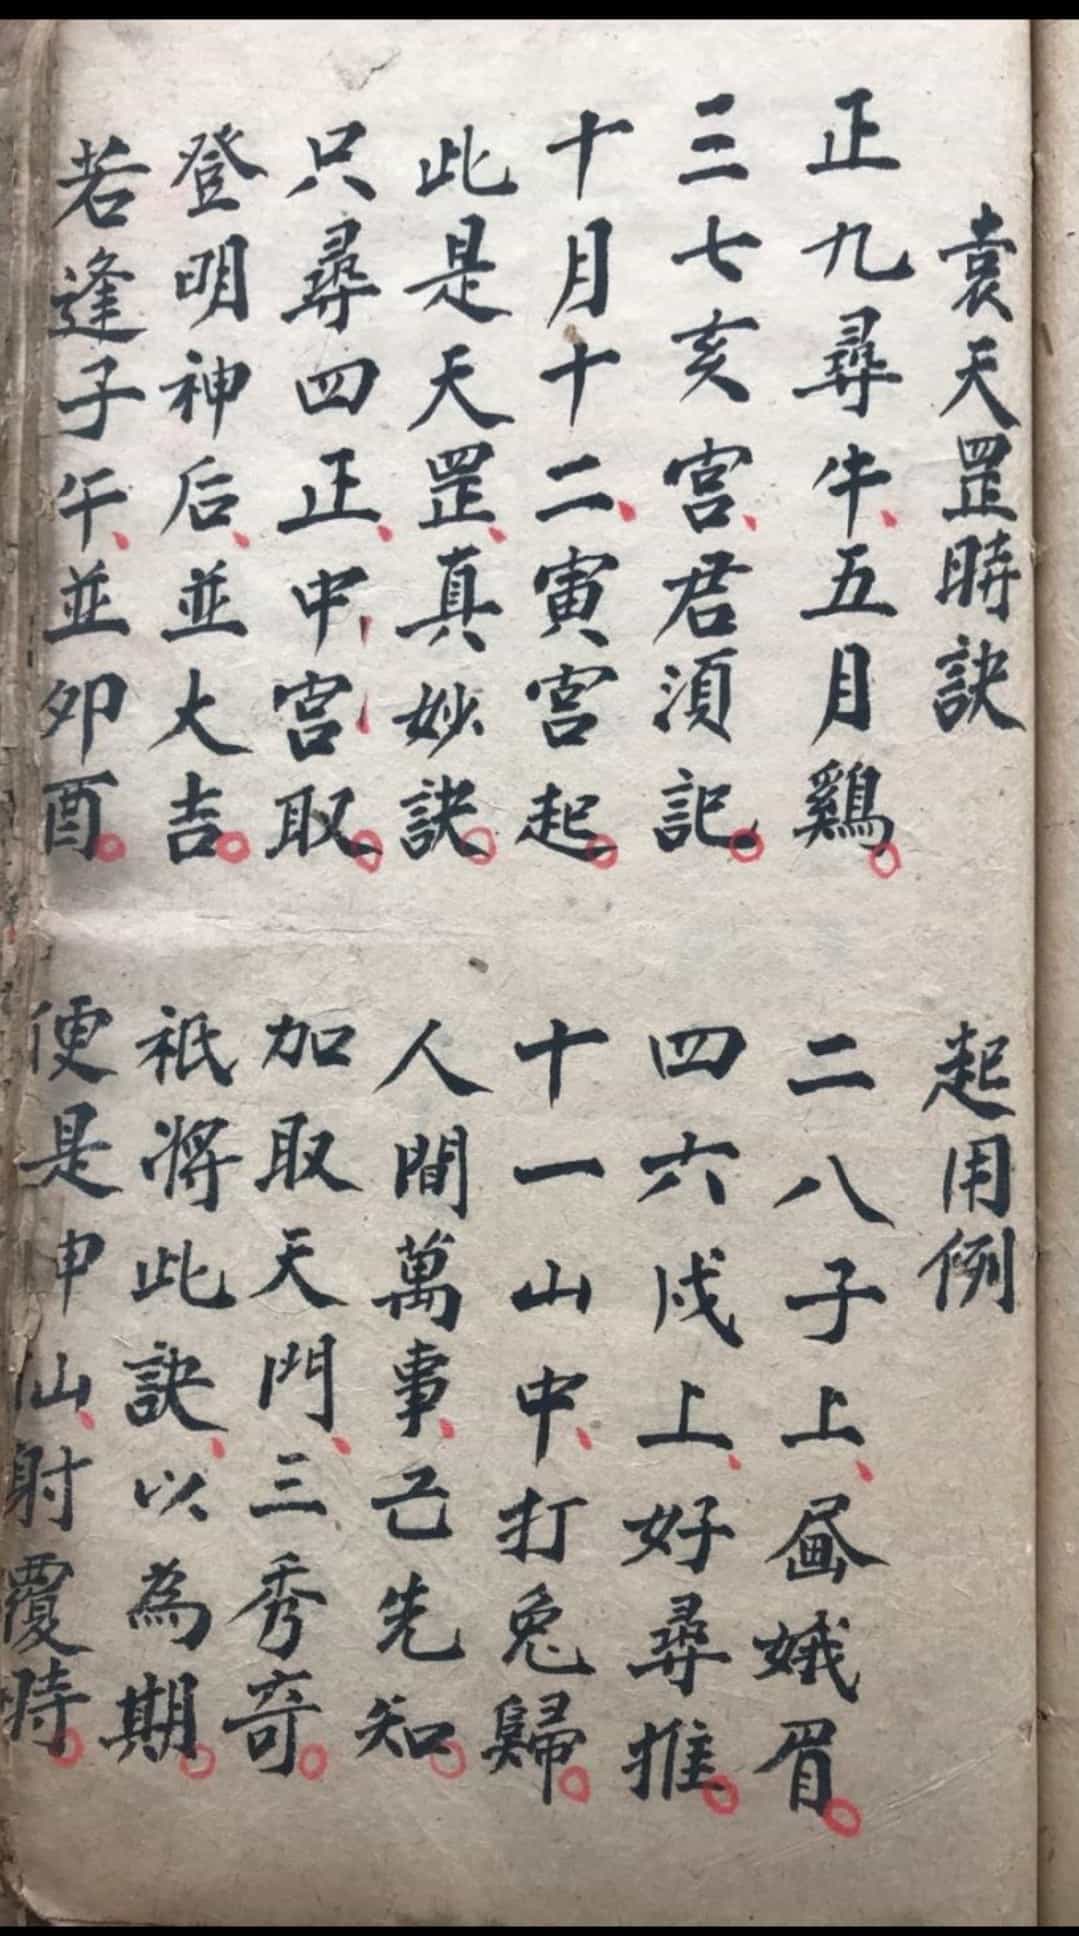 袁天罡時訣　起用例
正九尋牛、五月鷄。二八子上、画娥眉。
三七亥宮、君須記。四六戌上、好尋推。
十月十二、寅宮起。十一山中、打兔歸。
此是天罡、真妙訣。人間萬事、已先知。
只尋四正、中宮取。加取天門、三秀奇。
登明神后、並大吉。祇將此訣、以為期。
若逢子午、並卯酉。便是申仙、射覆時。